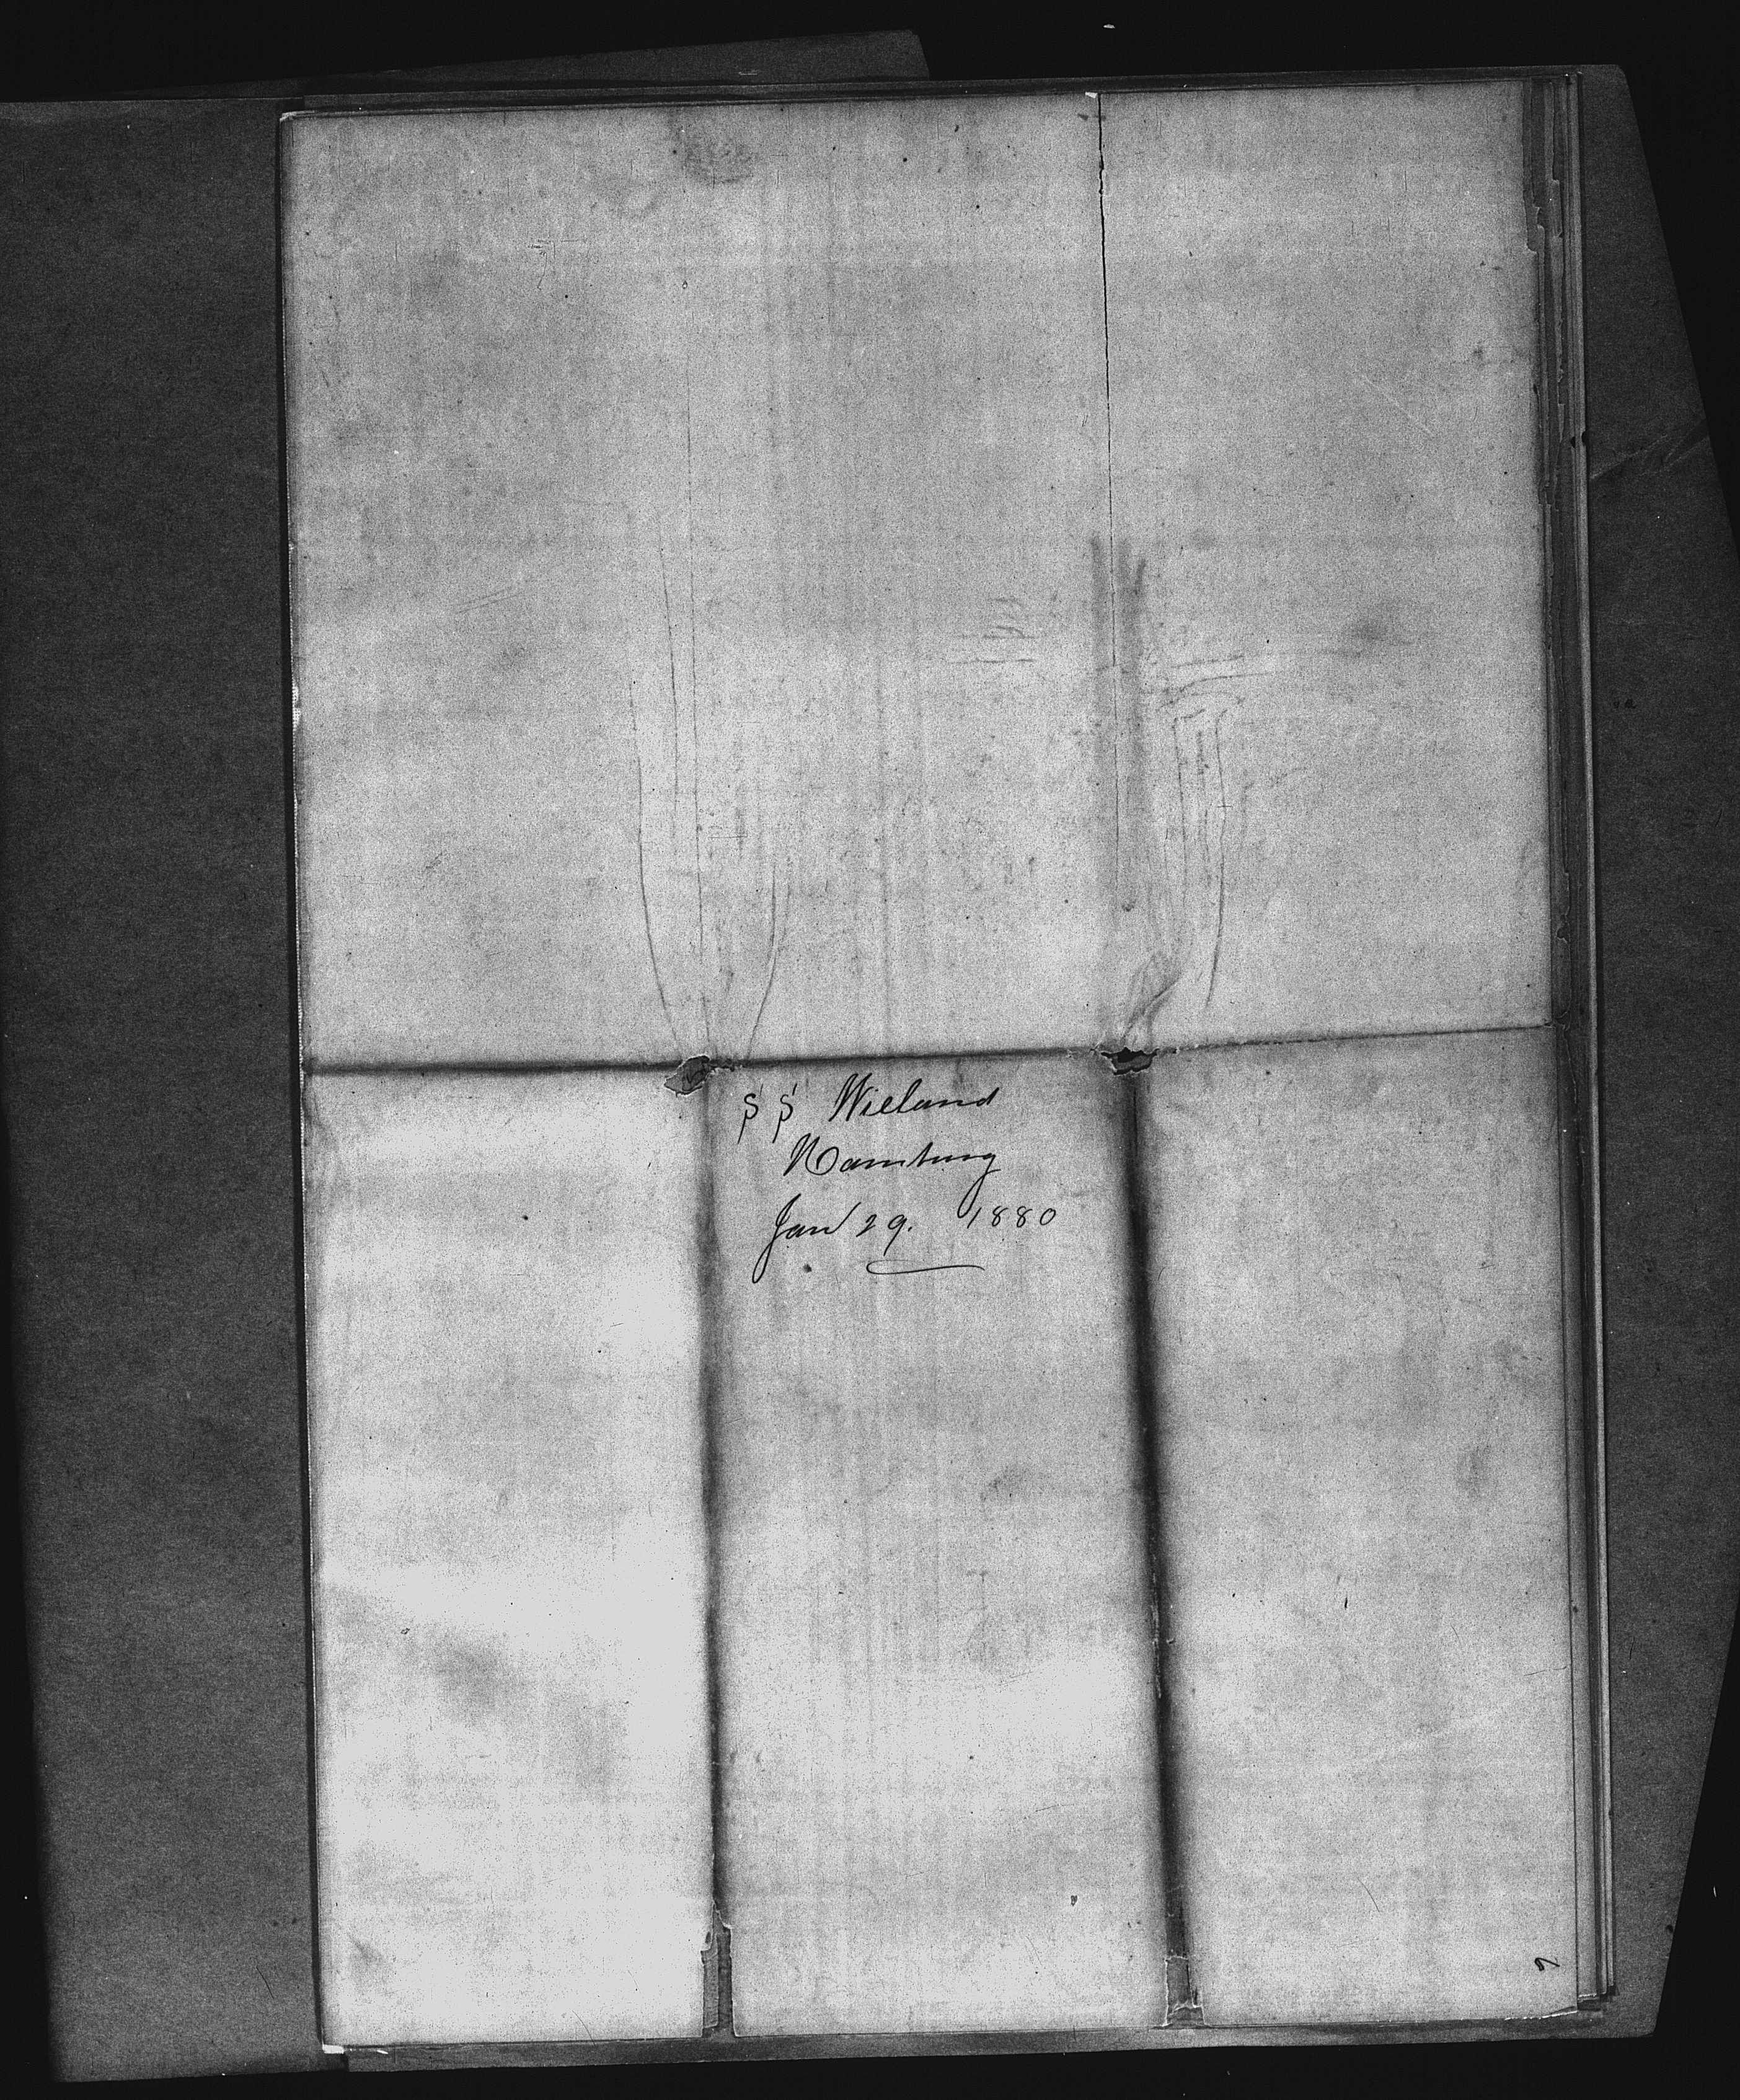 SS Wieland
Hamburg
Jan 29. 1880